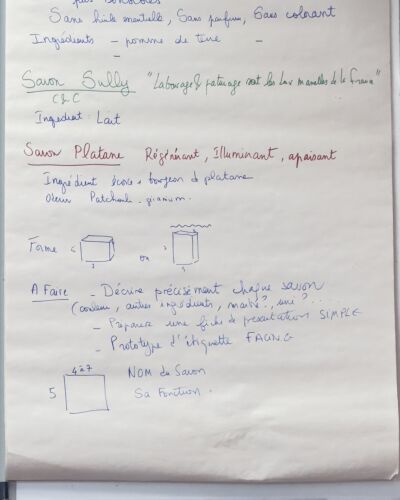 Sans huile essentielle, Sans parfum, Sans colorant
Ingrédients - pomme de terre -
-
Savon Sully "Labourage & paturage sont les deux mamelles de la France"
Ingrédient : Lait
Savon Platane Régénérant, Illuminant, apaisant
Ingrédient écorce + bourgeon de platane
Patchouli - géranium.
Forme ou
A Faire - Décrire précisément chaque savon
(couleur, autres ingrédients, marbré?, uni?...
- Préparer une fiche de présentation SIMPLE
- Prototype d'étiquette FACING
4 à 7 NOM du Savon
5 Sa Fonction.